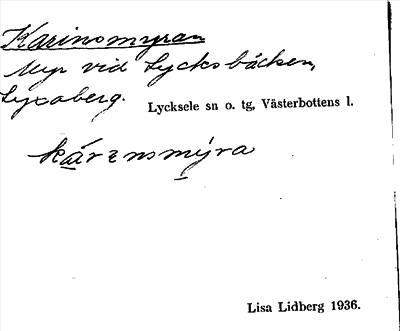 Karinsmyran
Myr vid Lycksbäcken,
Lycaberg.
Lycksele sn o. tg, Västerbottens l.
kárɛnsmýra
Lisa Lidberg 1936.